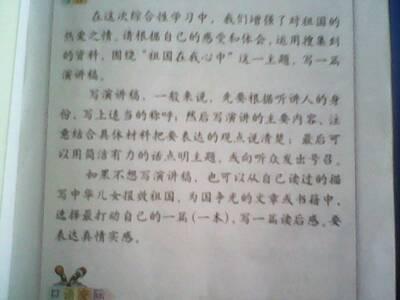 在这次综合性学习中，我们增强了对祖国的
热爱之情。请根据自己的感受和体会，运用搜集到
的资料，围绕“祖国在我心中”这一主题，写一篇
演讲稿。
写演讲稿，一般来说，先要根据听讲人的身
份，写上适当的称呼；然后写演讲的主要内容，注
意结合具体材料把要表达的观点说清楚；最后可
以用简洁有力的话点明主题，或向听众发出号召。
如果不想写演讲稿，也可以从自己读过的描
写中华儿女报效祖国、为国争光的文章或书籍中，
选择最打动自己的一篇（一本），写一篇读后感。要
表达真情实感。